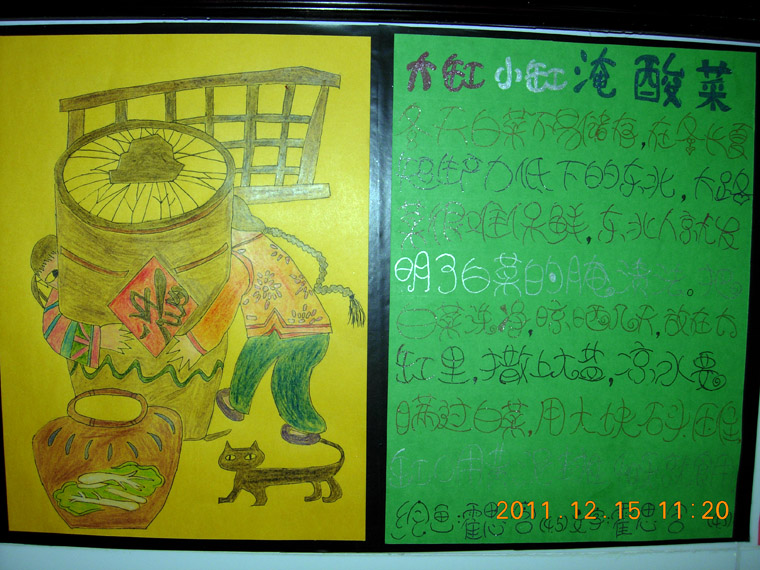 大缸 小缸 淹酸菜
冬天白菜不易储存,在冬长夏
短生产力低下的东北,大路
菜很难保鲜,东北人就发
明了白菜的腌渍
白菜洗净,晾晒几天,放在大
缸里,撒上大盐,凉水要
瞒过白菜,用大块石头压
缸口用
绘画:霍思 (45) 文字:霍思
2011.12.15 11:20